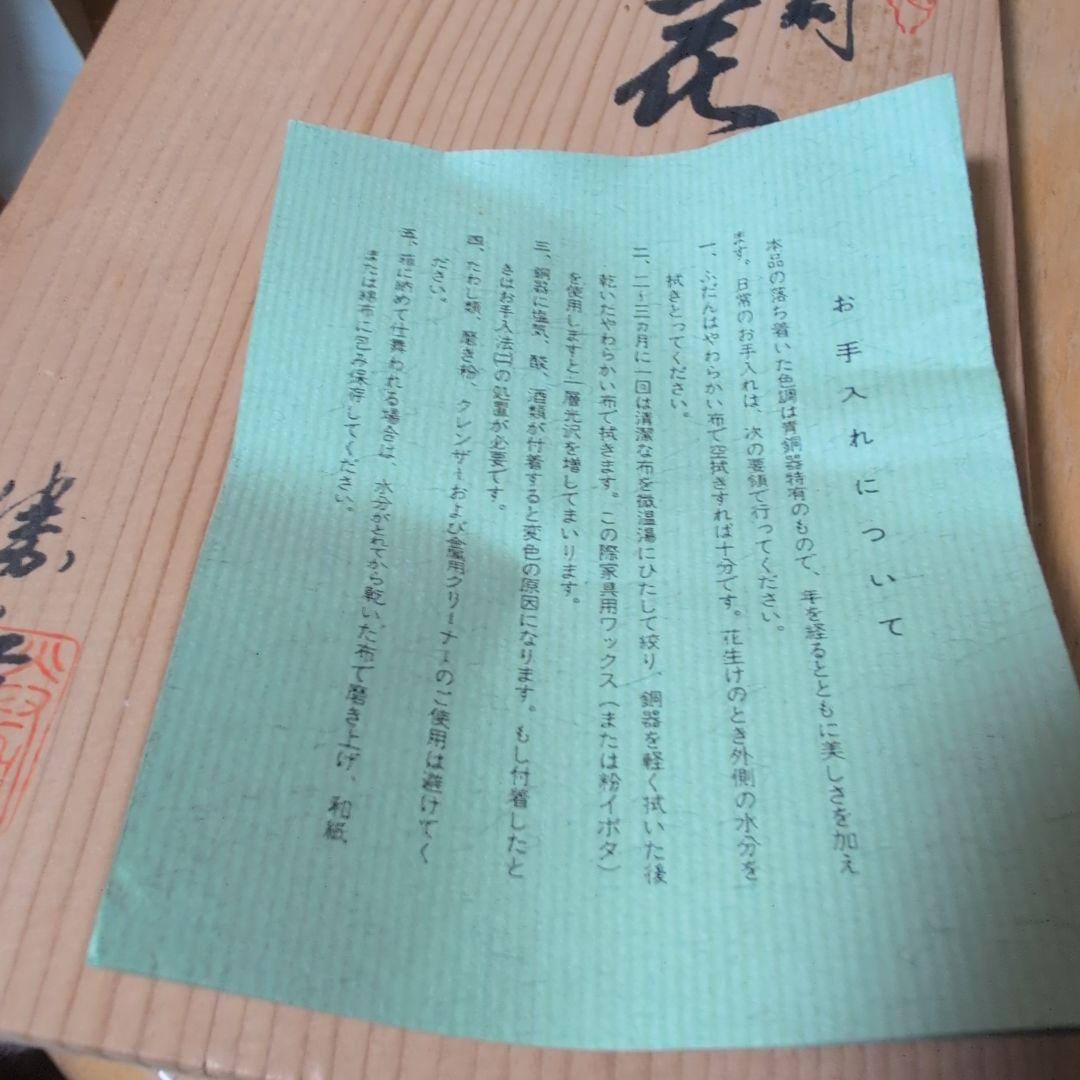 お手入れについて
本品の落ち着いた色調は青銅器特有のもので、年を経るとともに美しさを加え
ます。日常のお手入れは、次の要領で行ってください。
一、ふだんはやわらかい布で空拭きすれば十分です。花生けのとき外側の水分を
拭きとってください。
二、二〜三ヵ月に一回は清潔な布を微温湯にひたして絞り、銅器を軽く拭いた後
乾いたやわらかい布で拭きます。この際家具用ワックス（または粉イボタ）
を使用しますと一層光沢を増してまいります。
三、銅器に塩気、酸、酒類が付着すると変色の原因になります。もし付着したと
きはお手入法二の処置が必要です。
四、たわし類、磨き粉、クレンザーおよび金属用クリーナーのご使用は避けてく
ださい。
五、箱に納めて仕舞われる場合は、水分がとれてから乾いた布で磨き上げ、和紙
または綿布に包み保存してください。
花